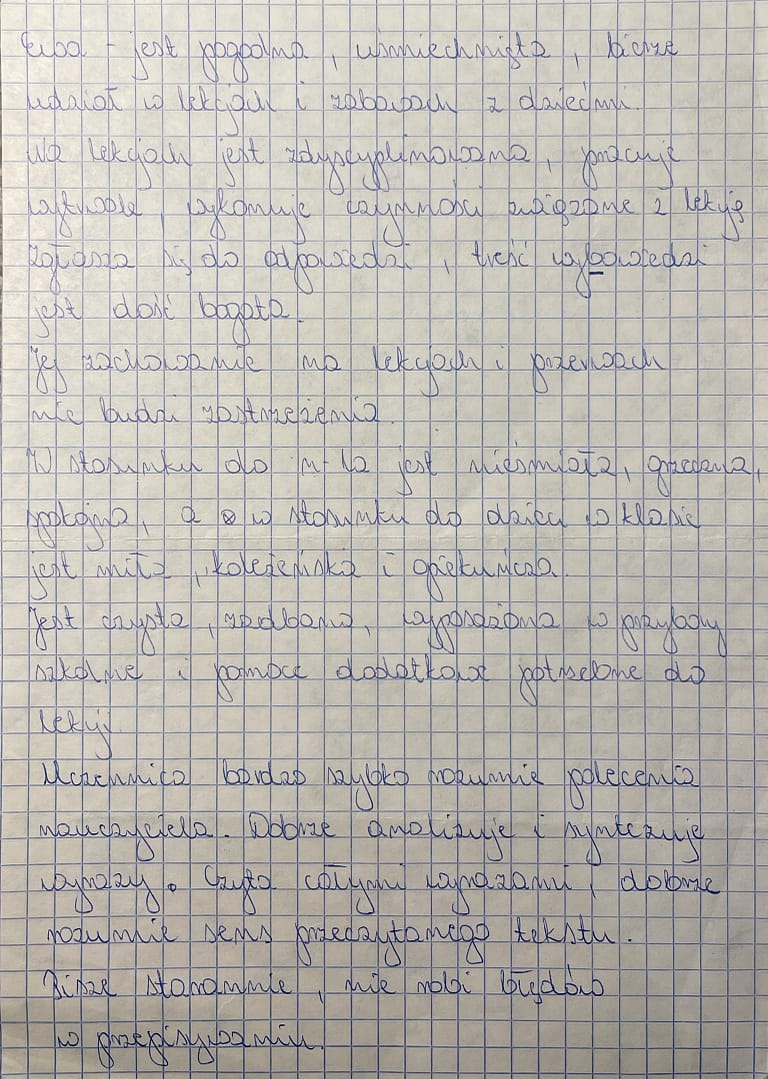 Ewa - jest pogodna, uśmiechnięta, bierze
udział w lekcjach i zabawach z dziećmi.
Na lekcjach jest zdyscyplinowana, pracuje
wytrwale, wykonuje czynności związane z lekcją
zgłasza się do odpowiedzi, treść wypowiedzi
jest dość bogata.
Jej zachowanie na lekcjach i przerwach
nie budzi zastrzeżenia.
W stosunku do n-la jest nieśmiała, grzeczna,
spokojna, a w stosunku do dzieci w klasie
jest miła, koleżeńska i opiekuńcza.
Jest czysta, zadbana, wyposażona w przybory
szkolne i pomoce dodatkowe potrzebne do
lekcji.
Uczennica bardzo szybko rozumie polecenia
nauczyciela. Dobrze analizuje i syntezuje
wyrazy. Czyta całymi wyrazami, dobrze
rozumie sens przeczytanego tekstu.
Pisze starannie, nie robi błędów
w przepisywaniu.